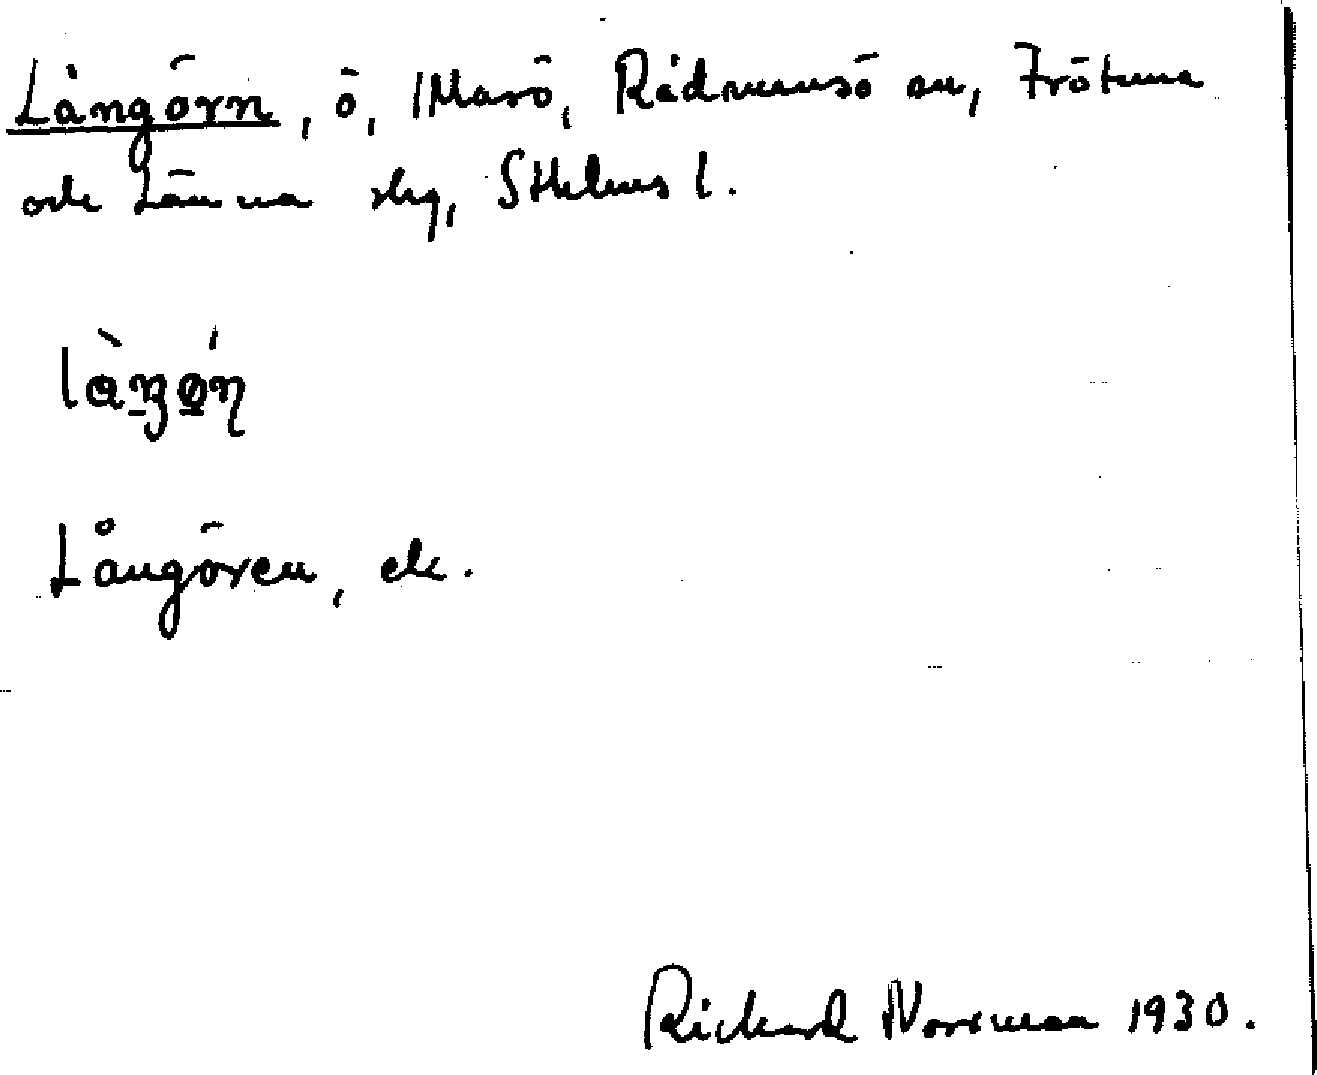 Långörn, ö, Masö, Rådmansö sn, Frötuna
och Länna slg, Sthlms l.
Långören, etc.
Rickard Norrman 1930.